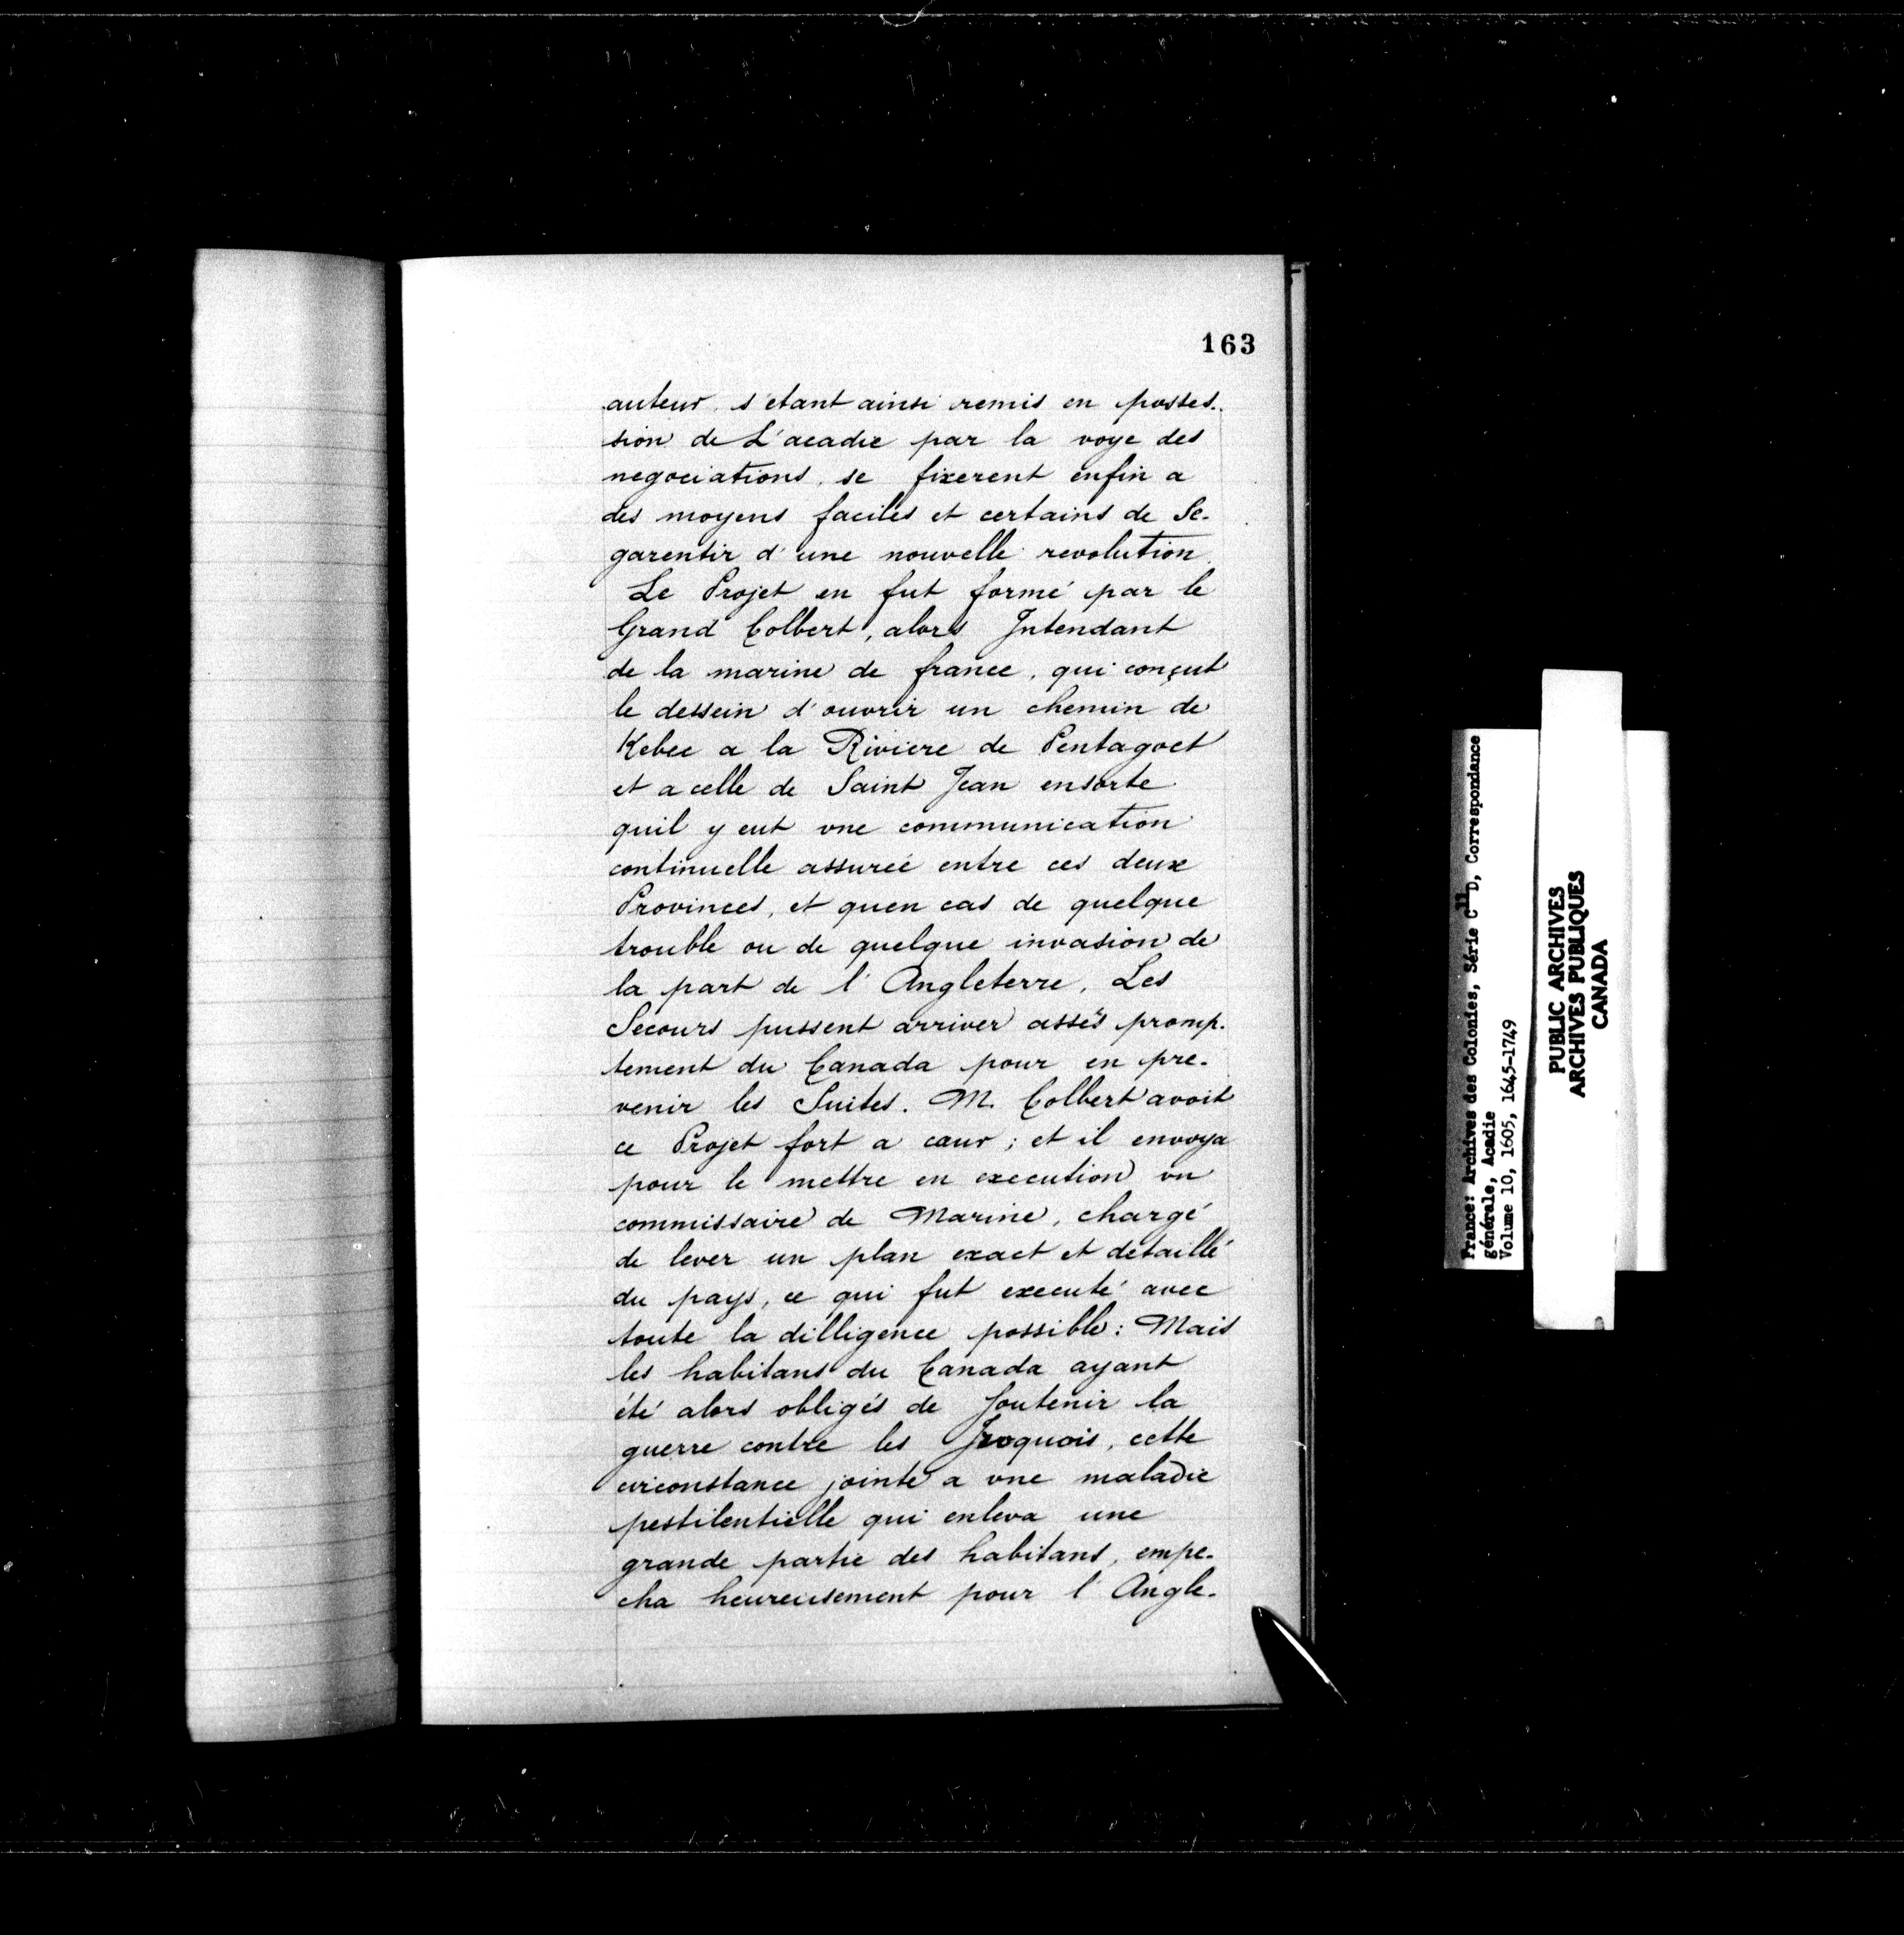 163
auteur s'etant ainsi remis en posses-
sion de L'acadie par la voye des
negociations, se fixerent enfin a
des moyens faciles et certains de Se-
garentir d'une nouvelle revolution.
Le Projet en fut formé par le
Grand Colbert, alors Intendant
de la marine de france, qui conçut
le dessein d'ouvrir un chemin de
Kebec a la Riviere de Pentagoet
et a celle de Saint Jean ensorte
quil y eut vne communication
continuelle assurée entre ces deux
Provinces, et quen cas de quelque
trouble ou de quelque invasion de
la part de l'Angleterre, Les
Secours pussent arriver assés promp-
tement du Canada pour en pre-
venir les Suites. M. Colbert avoit
ce Projet fort a cœur; et il envoya
pour le mettre en execution vn
commissaire de Marine, chargé
de lever un plan exact et detaillé
du pays, ce qui fut executé avec
toute la dilligence possible: Mais
les habitans du Canada ayant
été alors obligés de Soutenir la
guerre contre les Iroquois, cette
circonstance jointe a vne maladie
pestilentielle qui enleva une
grande partie des habitans, empe-
cha heureusement pour l'Angle-
France: Archives des Colonies, Série C11D, Correspondance
générale, Acadie
Volume 10, 1605, 1645-1749
PUBLIC ARCHIVES
ARCHIVES PUBLIQUES
CANADA